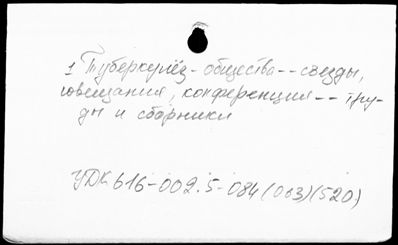 1 Туберкулёз - общества -- съезды,
совещания, конференция -- тру-
ды и сборники
УДК 616-002.5-084(063)(520)